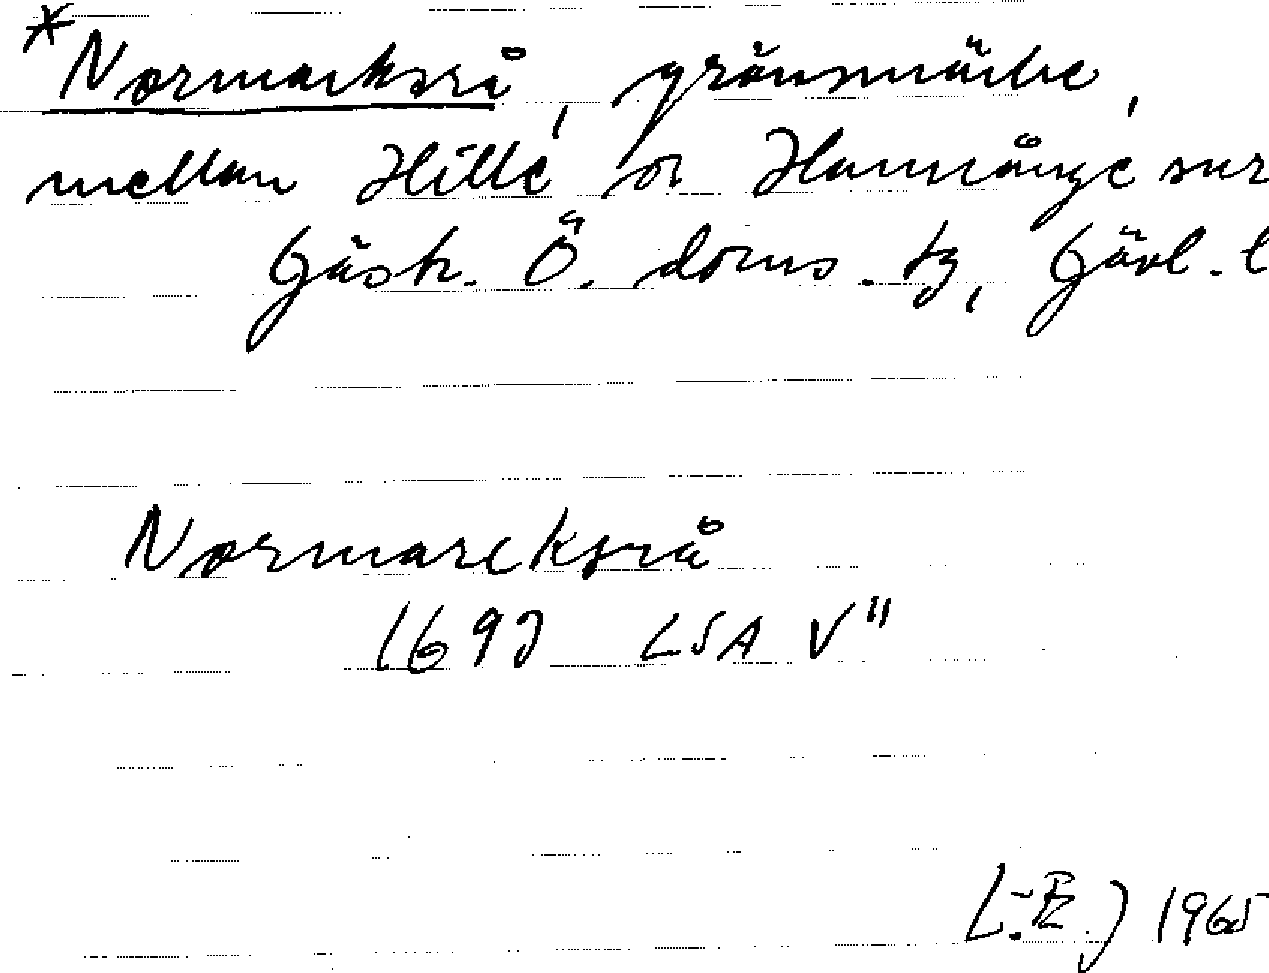 *Normarksrå, gränsmärke,
mellan Hille o. Hamrånge snr
Gästr. Ö. doms. tg, Gävl. l
Normareksrå
1693 LSA V"
L.E.J 1965